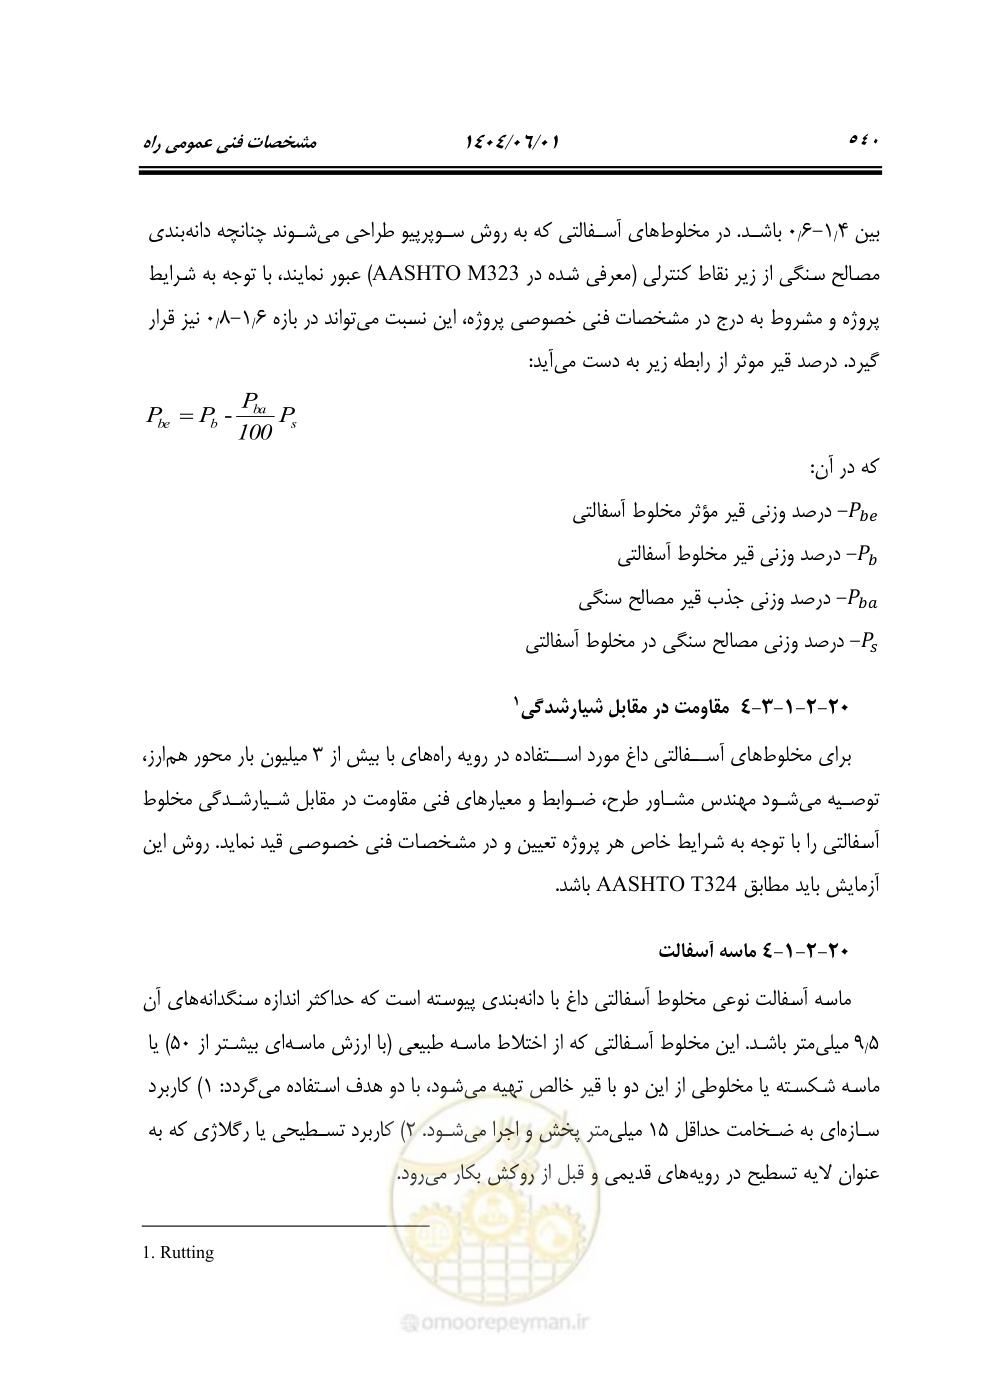 ۵۴۰ ۱۴۰۴/۰۶/۰۱ مشخصات فنی عمومی راه
بین ۱٫۴–۰٫۶ باشد. در مخلوط‌های آسفالتی که به روش سوپرپیو طراحی می‌شوند چنانچه دانه‌بندی
مصالح سنگی از زیر نقاط کنترلی (معرفی شده در AASHTO M323) عبور نمایند، با توجه به شرایط
پروژه و مشروط به درج در مشخصات فنی خصوصی پروژه، این نسبت می‌تواند در بازه ۱٫۶–۰٫۸ نیز قرار
گیرد. درصد قیر موثر از رابطه زیر به دست می‌آید:
P_be = P_b - (P_ba / 100) P_s
که در آن:
P_be– درصد وزنی قیر مؤثر مخلوط آسفالتی
P_b– درصد وزنی قیر مخلوط آسفالتی
P_ba– درصد وزنی جذب قیر مصالح سنگی
P_s– درصد وزنی مصالح سنگی در مخلوط آسفالتی
۲۰-۲-۱-۳-۴ مقاومت در مقابل شیارشدگی۱
برای مخلوط‌های آسفالتی داغ مورد استفاده در رویه راه‌های با بیش از ۳ میلیون بار محور هم‌ارز،
توصیه می‌شود مهندس مشاور طرح، ضوابط و معیارهای فنی مقاومت در مقابل شیارشدگی مخلوط
آسفالتی را با توجه به شرایط خاص هر پروژه تعیین و در مشخصات فنی خصوصی قید نماید. روش این
آزمایش باید مطابق AASHTO T324 باشد.
۲۰-۲-۱-۴ ماسه آسفالت
ماسه آسفالت نوعی مخلوط آسفالتی داغ با دانه‌بندی پیوسته است که حداکثر اندازه سنگدانه‌های آن
۹٫۵ میلی‌متر باشد. این مخلوط آسفالتی که از اختلاط ماسه طبیعی (با ارزش ماسه‌ای بیشتر از ۵۰) یا
ماسه شکسته یا مخلوطی از این دو با قیر خالص تهیه می‌شود، با دو هدف استفاده می‌گردد: ۱) کاربرد
سازه‌ای به ضخامت حداقل ۱۵ میلی‌متر پخش و اجرا می‌شود. ۲) کاربرد تسطیحی یا رگلاژی که به
عنوان لایه تسطیح در رویه‌های قدیمی و قبل از روکش بکار می‌رود.
1. Rutting
@omoorepeyman.ir